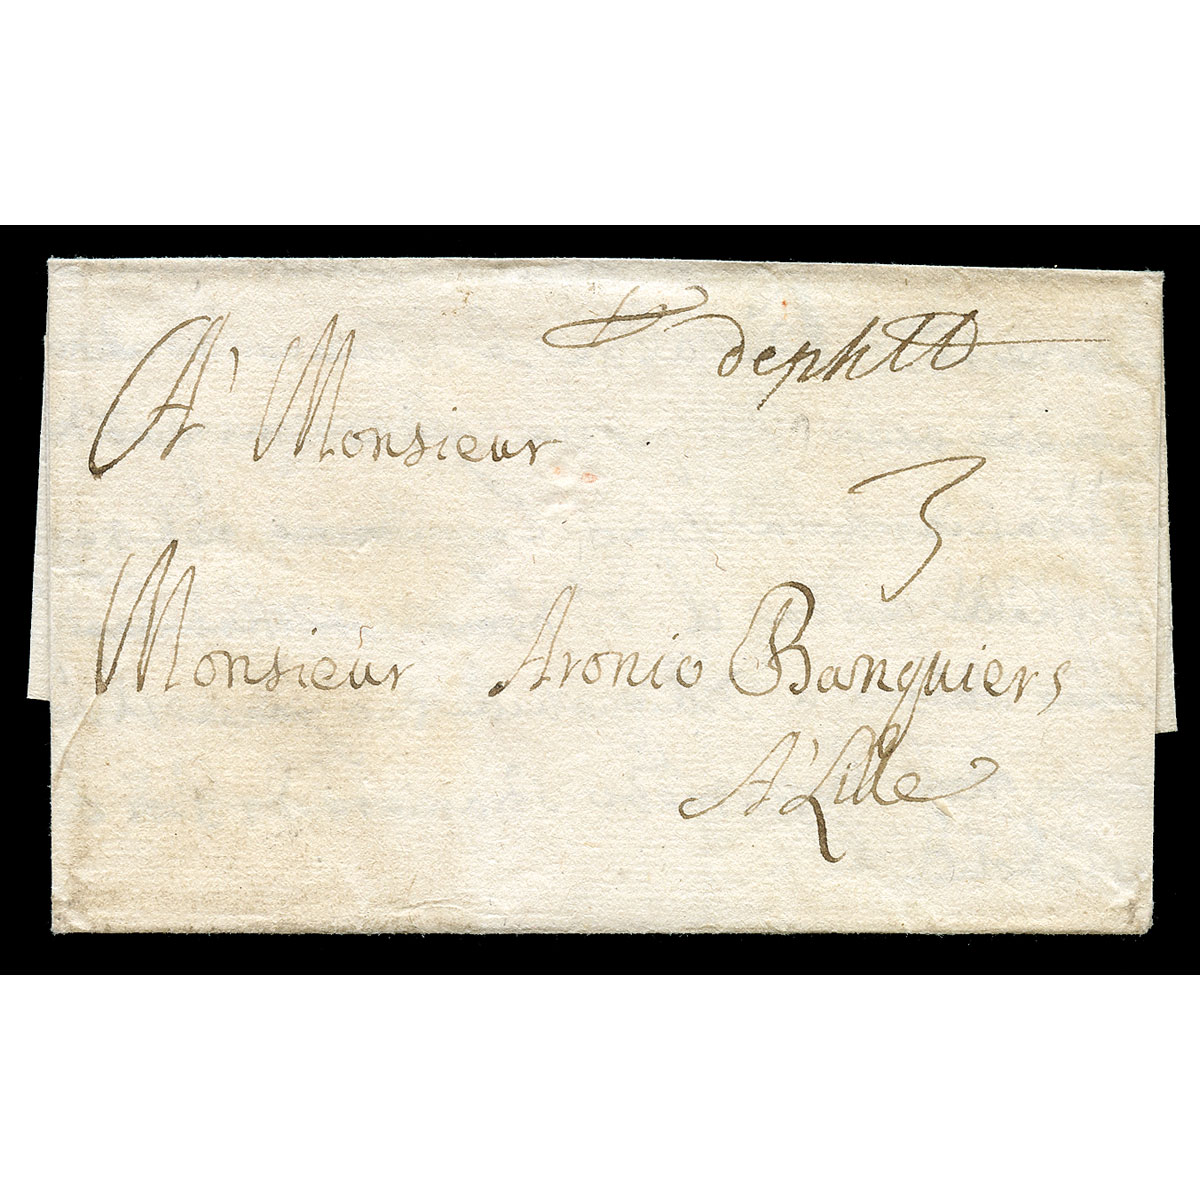 dephtt
A' Monsieur
3
Monsieur Aronio Banquiers
A' Lille